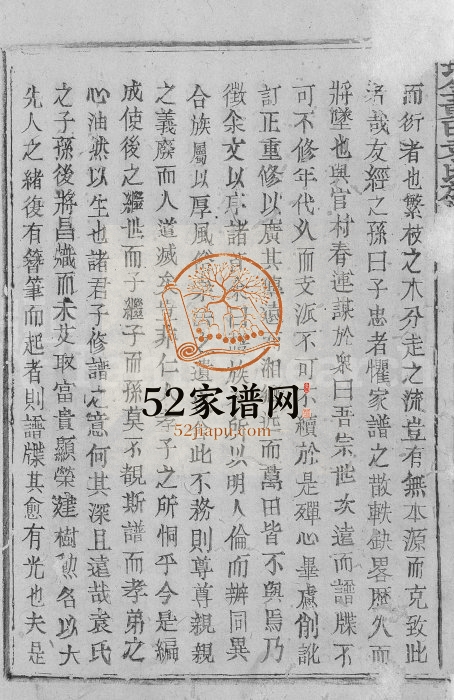 而衍者也繁枝之木分走之流豈有無本源而克致此
者哉友經之孫曰子忠者懼家譜之散軼缺畧歷久而
將墜也與官村春蓮謀於衆曰吾宗世次遠而譜牒不
可不修年代久而支派不可不續於是殫心畢慮削訛
訂正重修以廣其 遠 湘 而萬田皆不與焉乃
徵余文以序諸首余曰 以明人倫而辨同異
合族屬以厚風俗 遺 此不務則尊尊親親
之義廢而人道滅矣豈非仁 孝子之所恫乎今是編
成使後之繼世而子繼子而孫莫不覩斯譜而孝弟之
心油然以生也諸君子修譜之意何其深且遠哉袁氏
之子孫後將昌熾而未艾取富貴顯榮建樹勲名以大
先人之緒復有簪筆而起者則譜牒其愈有光也夫是
52家谱网
52jiapu.com